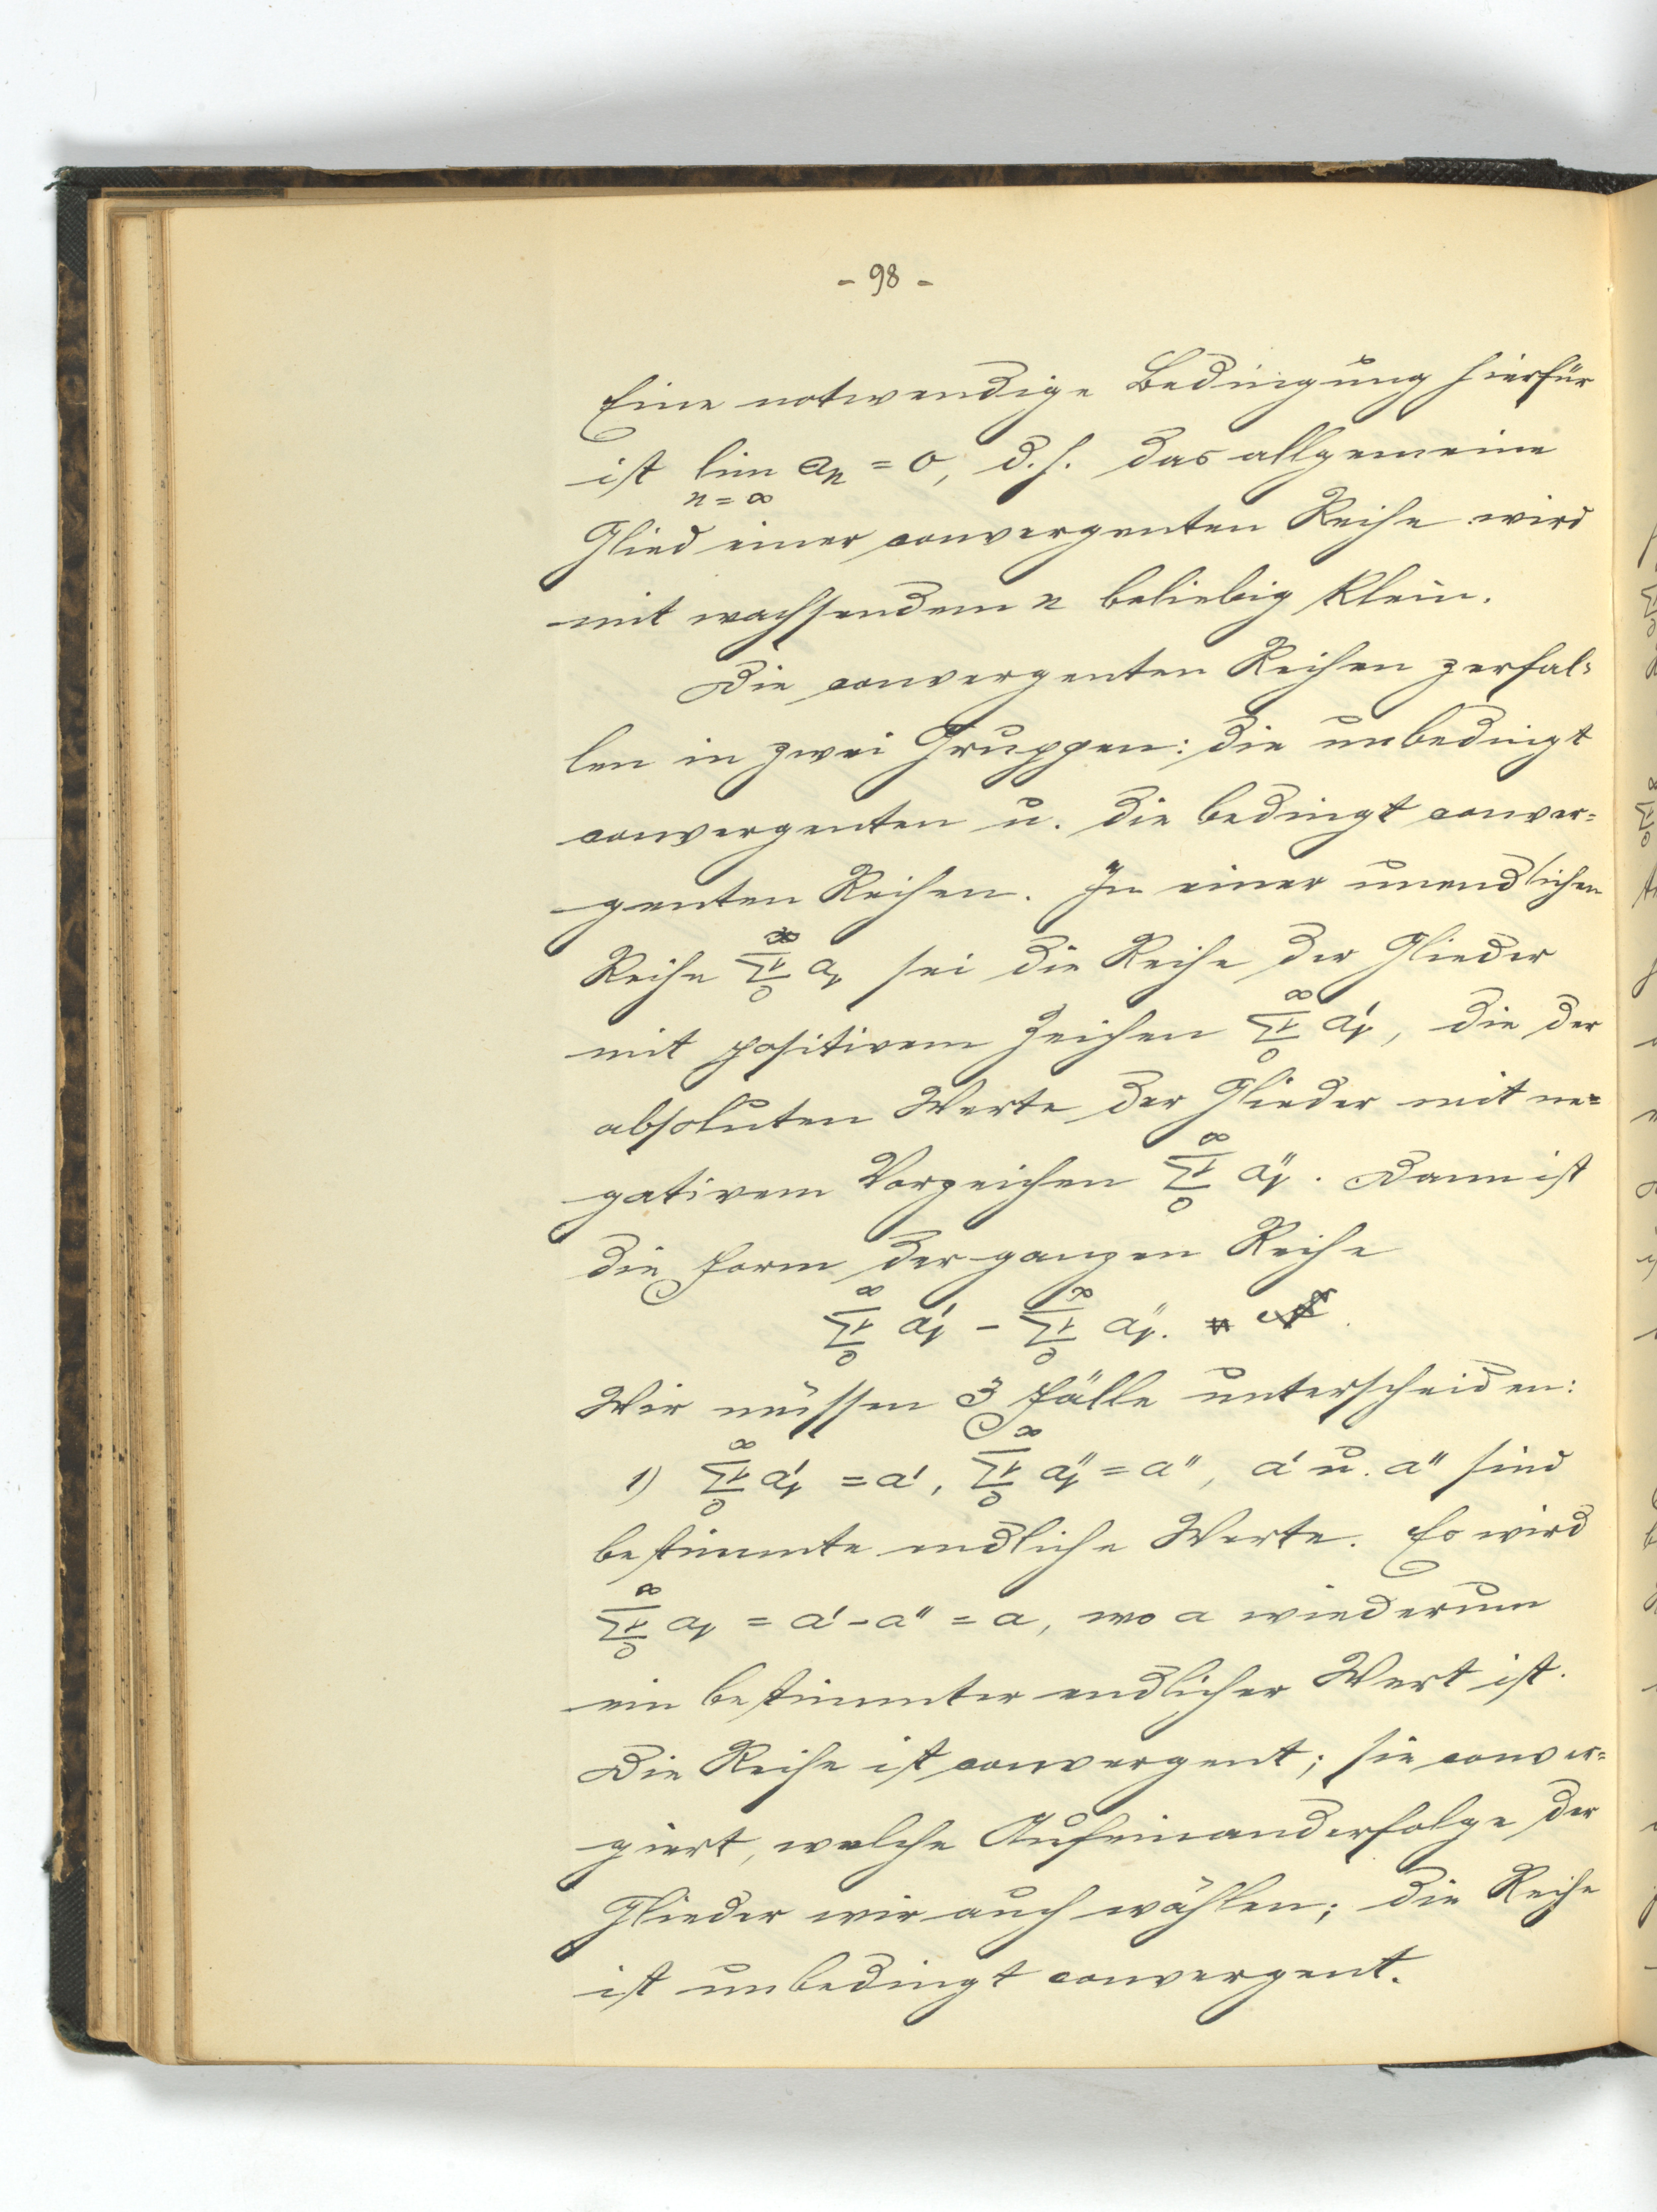 - 98 -
Eine notwendige Bedingung hierfür
ist lim aₙ = 0, d. h. das allgemeine
n = ∞
Glied einer convergenten Reihe wird
mit wachsendem n beliebig klein.
Die convergenten Reihen zerfal=
len in zwei Gruppen: die unbedingt
convergenten u. die bedingt conver=
genten Reihen. In einer unendlichen
Reihe ∑ᵥ₀^∞ aᵥ sei die Reihe der Glieder
mit positivem Zeichen ∑ᵥ₀^∞ a'ᵥ, die der
absoluten Werte der Glieder mit ne=
gativem Vorzeichen ∑ᵥ₀^∞ a''ᵥ. Dann ist
die Form der ganzen Reihe
∑ᵥ₀^∞ a'ᵥ - ∑ᵥ₀^∞ a''ᵥ.
Wir müssen 3 Fälle unterscheiden:
1) ∑ᵥ₀^∞ a'ᵥ = a', ∑ᵥ₀^∞ a''ᵥ = a'', a' u. a'' sind
bestimmte endliche Werte. Es wird
∑ᵥ₀^∞ aᵥ = a' - a'' = a, wo a wiederum
ein bestimmter endlicher Wert ist.
Die Reihe ist convergent; sie conver=
giert, welche Aufeinanderfolge der
Glieder wir auch wählen; die Reihe
ist unbedingt convergent.